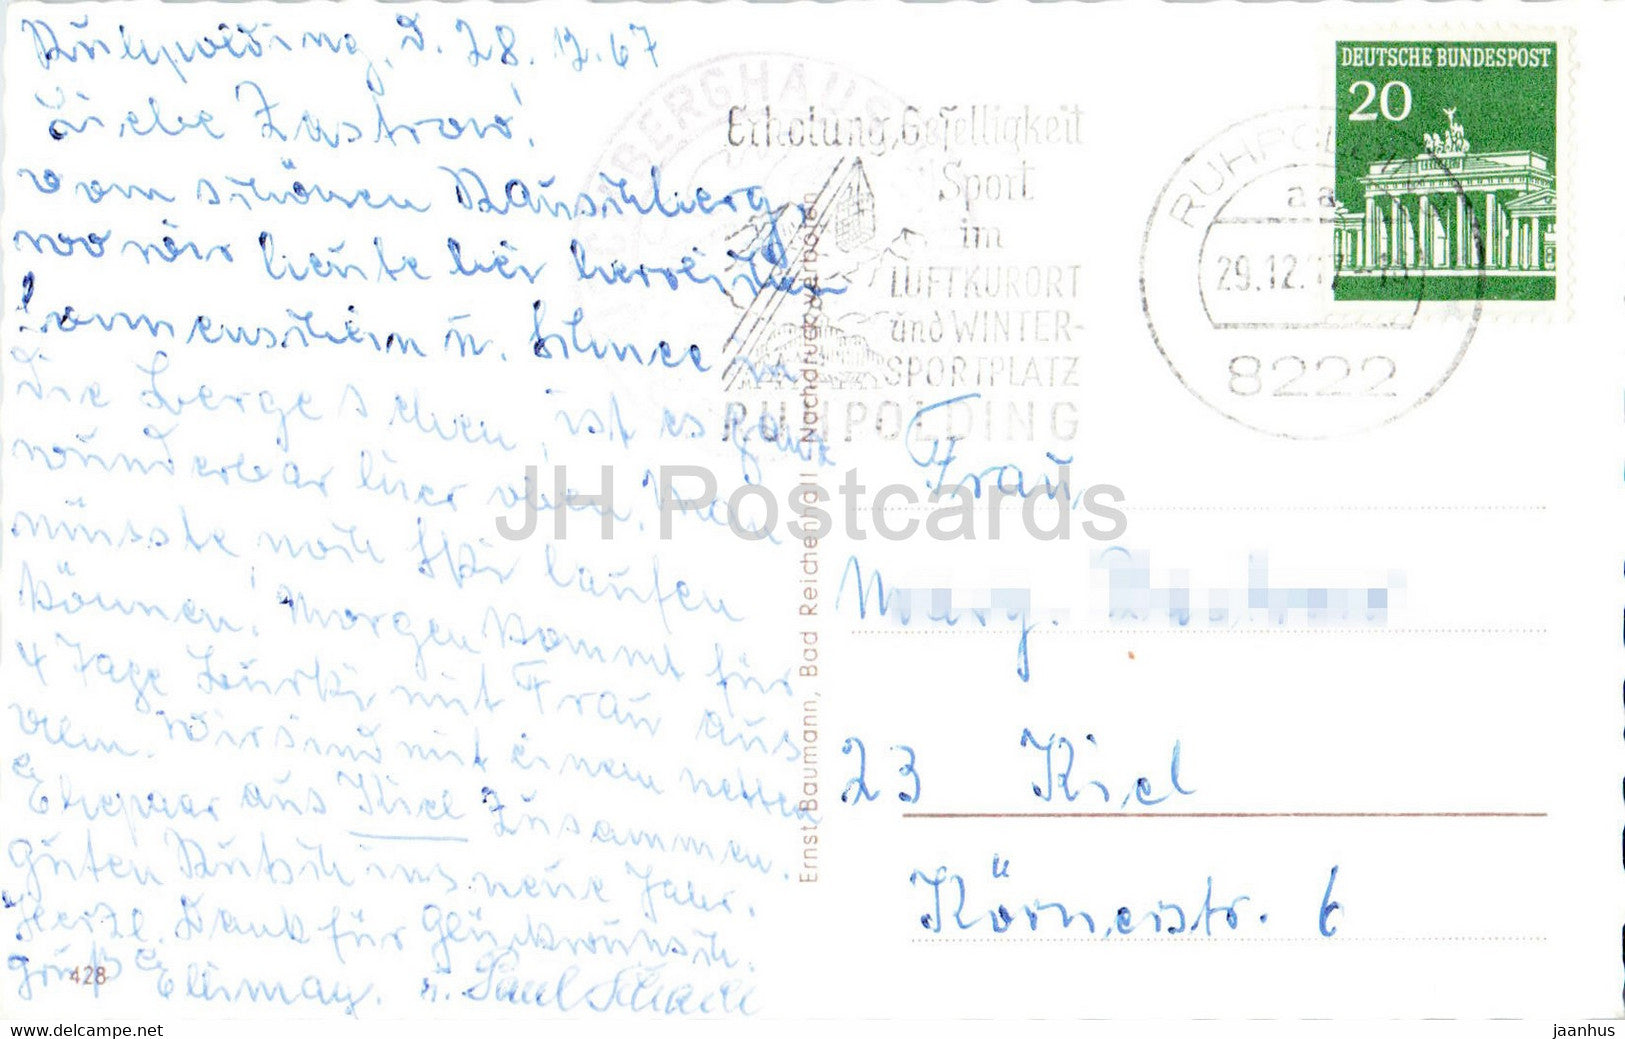 Ruhpolding, d. 28.12.67
Liebe Zastrow!
Vom schönen Rauschberg,
wo wir heute bei herrlichem
Sonnenschein u. Schnee in
die Berge sehen, ist es ganz
wunderbar hier oben. Man
müsste noch Ski laufen
können! Morgen kommt für
4 Tage mit Frau aus
Ulm. Wir sind mit einem netten
Ehepaar aus Kiel zusammen.
Guten Rutsch ins neue Jahr.
Herzl. Dank für Glückwunsch.
Gruß Elismay. u. Paul
428
Ernst Baumann, Bad Reichenhall Nachdruck verboten
Erholung, Geselligkeit
Sport
im
LUFTKURORT
und WINTER-
SPORTPLATZ
RUHPOLDING
RUHPOLDING
aa
29.12.67-18
8222
DEUTSCHE BUNDESPOST
20
Frau
Marg.
23 Kiel
Körnerstr. 6
JH Postcards
www.delcampe.net
jaanhus